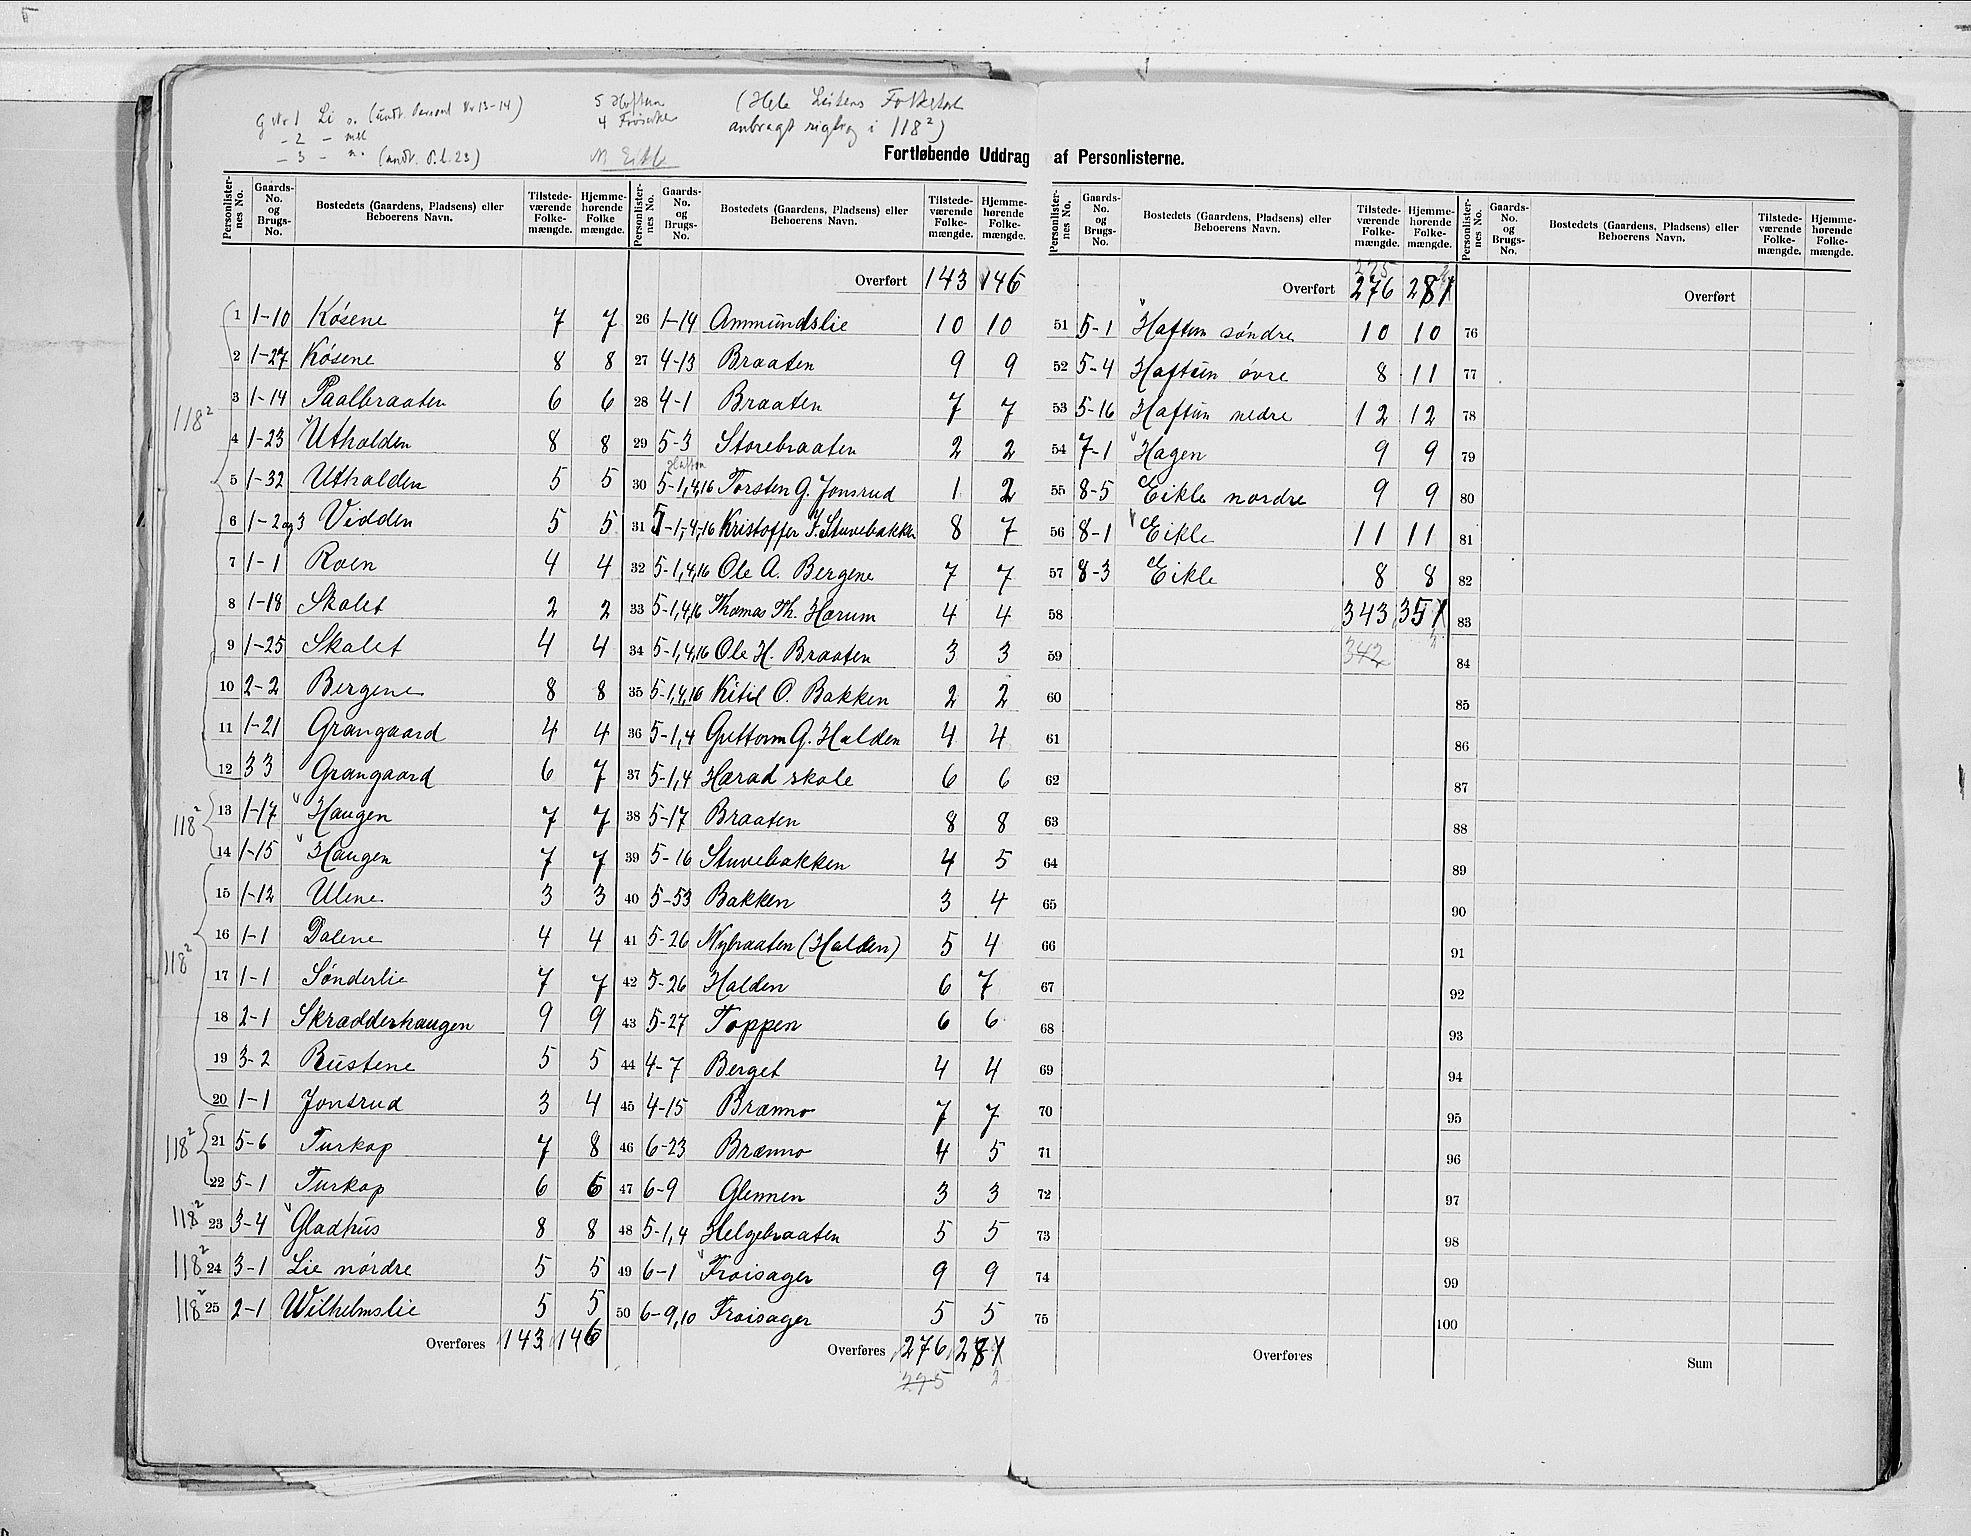 G Nr 1 Li s. (undt. Personl Nr 13-14)
- 2 - mel
- 3 - n. (undt. P.l. 23)
5 Haftun
4 Frøisaker
N Eikle
(Hele Listens Folketal
anbragt rigtig i 118²)
Fortløbende Uddrag af Personlisterne.
Personlisternes No. Gaards-No. og Brugs-No. Bostedets (Gaardens, Pladsens) eller Beboerens Navn. Tilstedeværende Folkemængde. Hjemmehørende Folkemængde.
118²
1 1-10 Kösene 7 7
2 1-27 Kösene 8 8
3 1-14 Paalbraaten 6 6
4 1-23 Uthalden 8 8
5 1-32 Uthalden 5 5
6 1-2 og 3 Vidden 5 5
7 1-1 Roen 4 4
8 1-18 Skalet 2 2
9 1-25 Skalet 4 4
10 2-2 Bergene 8 8
11 1-21 Grangaard 4 4
12 3 3 Grangaard 6 7
118²
13 1-17 Haugen 7 7
14 1-15 Haugen 7 7
118²
15 1-12 Ulene 3 3
16 1-1 Dalene 4 4
17 1-1 Sönderlie 7 7
18 2-1 Skradderhaugen 9 9
19 3-2 Rustene 5 5
20 1-1 Jonsrud 3 4
118²
21 5-6 Turkop 7 8
22 5-1 Turkop 6 6
118² 23 3-4 Gladhus 8 8
118² 24 3-1 Lie nördre 5 5
118² 25 2-1 Wilhelmslie 5 5
Overføres 143 146
Personlisternes No. Gaards-No. og Brugs-No. Bostedets (Gaardens, Pladsens) eller Beboerens Navn. Tilstedeværende Folkemængde. Hjemmehørende Folkemængde.
Overført 143 146
26 1-14 Ammundslie 10 10
27 4-13 Braaten 9 9
28 4-1 Braaten 7 7
29 5-3 Storebraaten 2 2
Haftun
30 5-1,4,16 Torsten G. Jonsrud 1 2
31 5-1,-4,-16 Kristoffer J. Stuvebakken 8 7
32 5-1,4,16 Ole A. Bergene 7 7
33 5-1,4,16 Thomas Th. Hærum 4 4
34 5-1,4,16 Ole H. Braaten 3 3
35 5-1,4,16 Kitil O. Bakken 2 2
36 5-1,4 Guttorm G. Halden 4 4
37 5-1,4 Hærad skole 6 6
38 5-17 Braaten 8 8
39 5-16 Stuvebakken 4 5
40 5-53 Bakken 3 4
41 5-26 Nybraaten (Halden) 5 4
42 5-26 Halden 6 7
43 5-27 Toppen 6 6
44 4-7 Berget 4 4
45 4-15 Brænno 7 7
46 6-23 Brænno 4 5
47 6-9 Glennen 3 3
48 5-1,4 Helgebraaten 5 5
49 6-1 Froisager 9 9
50 6-9,10 Froisager 5 5
Overføres 276 281
275 2
Personlisternes No. Gaards-No. og Brugs-No. Bostedets (Gaardens, Pladsens) eller Beboerens Navn. Tilstedeværende Folkemængde. Hjemmehørende Folkemængde.
275 2
Overført 276 281
51 5-1 Haftun söndre 10 10
52 5-4 Haftun övre 8 11
53 5-16 Haftun nedre 12 12
54 7-1 Hagen 9 9
55 8-5 Eikle nordre 9 9
56 8-1 Eikle 11 11
57 8-3 Eikle 8 8
58 343 351
59 342 2
60
61
62
63
64
65
66
67
68
69
70
71
72
73
74
75
Overføres
Personlisternes No. Gaards-No. og Brugs-No. Bostedets (Gaardens, Pladsens) eller Beboerens Navn. Tilstedeværende Folkemængde. Hjemmehørende Folkemængde.
Overført
76
77
78
79
80
81
82
83
84
85
86
87
88
89
90
91
92
93
94
95
96
97
98
99
100
Sum